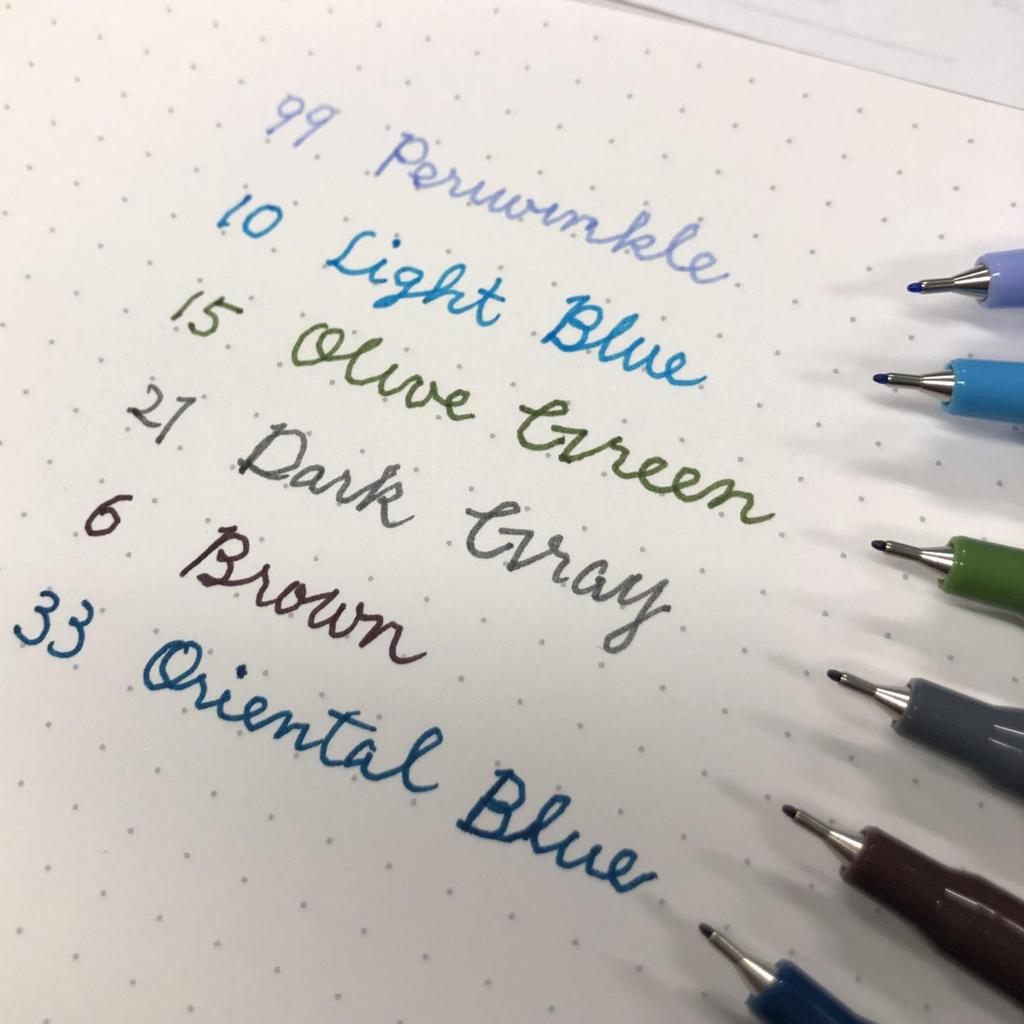 99 Periwinkle
10 Light Blue
15 Olive Green
27 Dark Gray
6 Brown
33 Oriental Blue